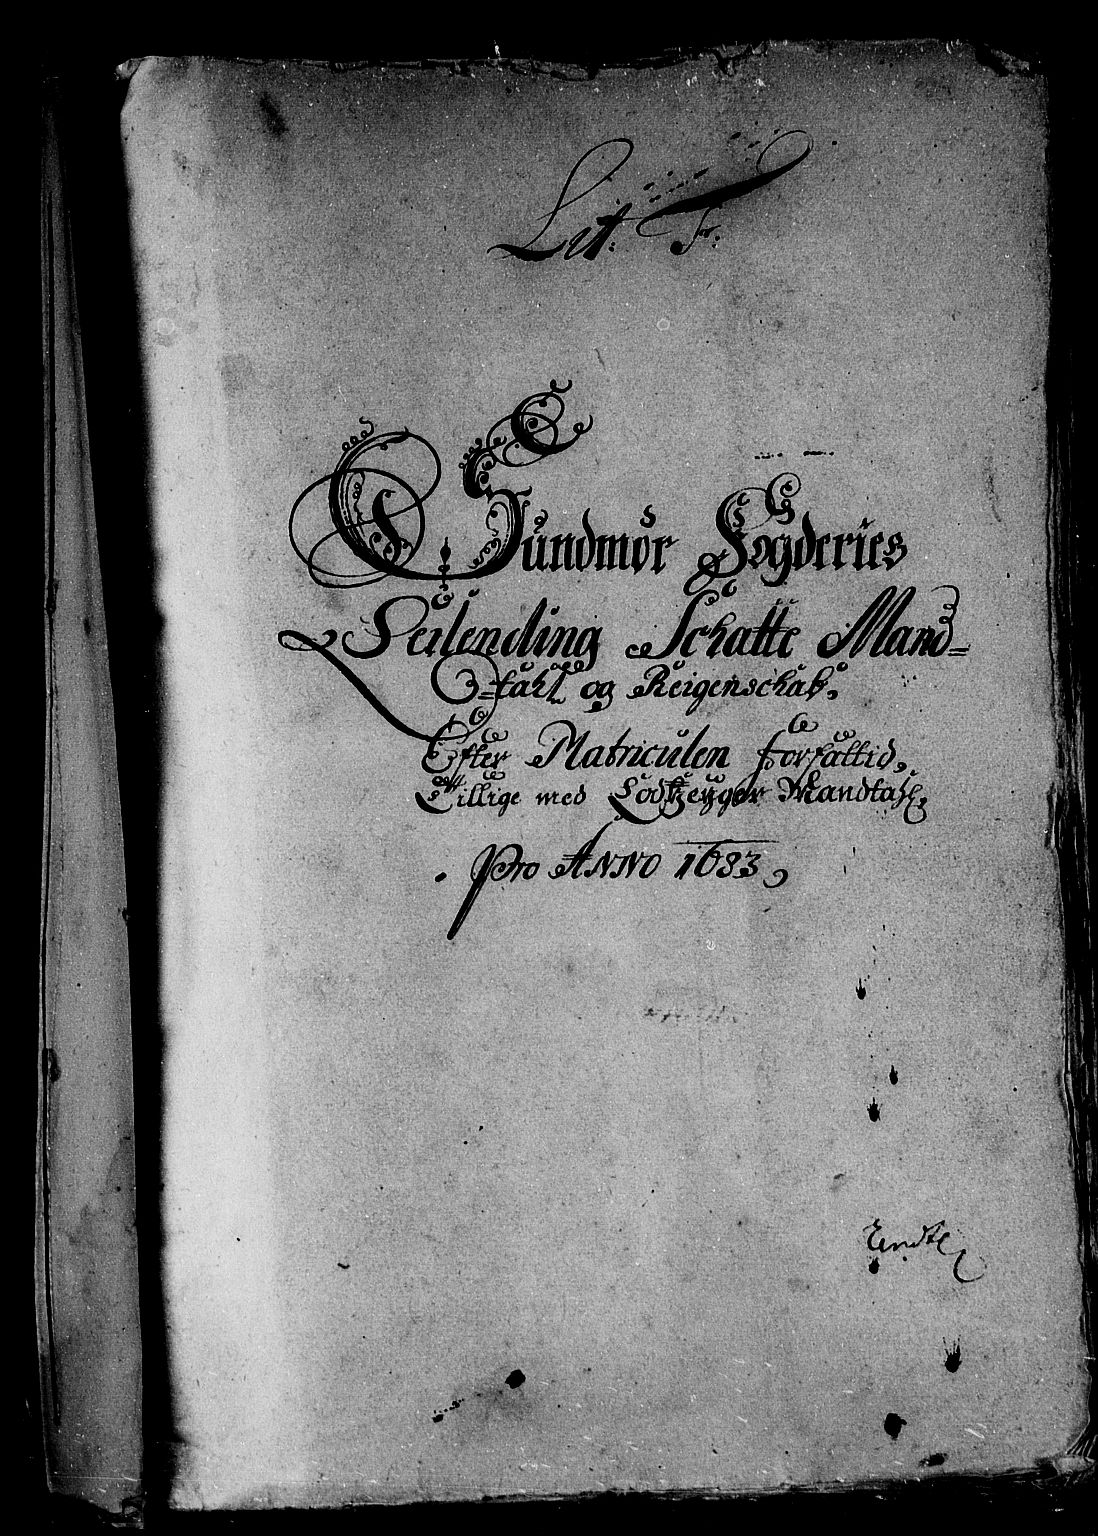 Lit: F:
Sundmør Fogderies
Leilending Schatte Mand=
=tahl og Reigenschab,
Efter Matriculen forfattid,
Tillige med Lodtzeyger Mandtahl,
Pro ANNO 1683,